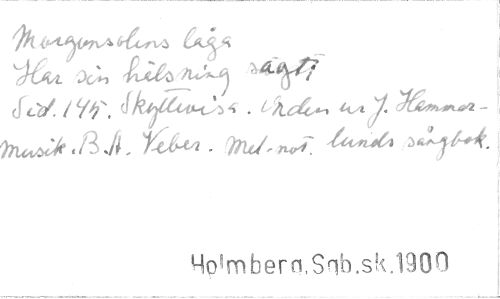 Morgonsolens låga
Har sin hälsning sagt;
Sid. 145. Skyttevisa. Orden ur J. Hammar-
musik. B. A. Veber. Mel-not. lunds sångbok.
Holmberg, Sgb.sk.1900